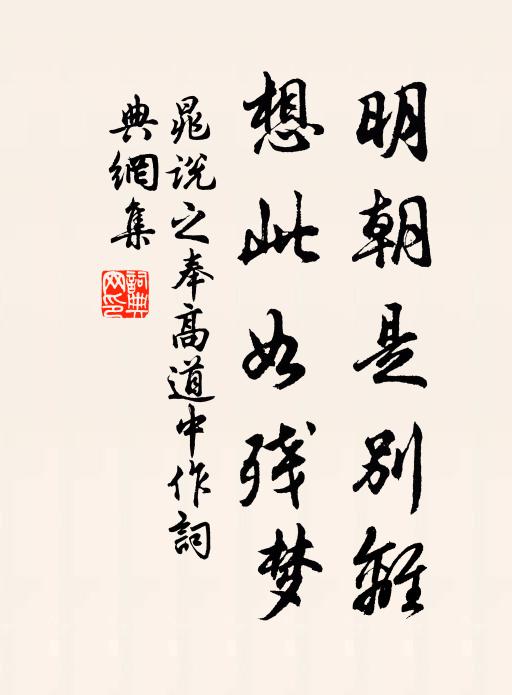 明朝是别離
想此如残梦
晁説之奉高道中作詞
典網集
詞典网印